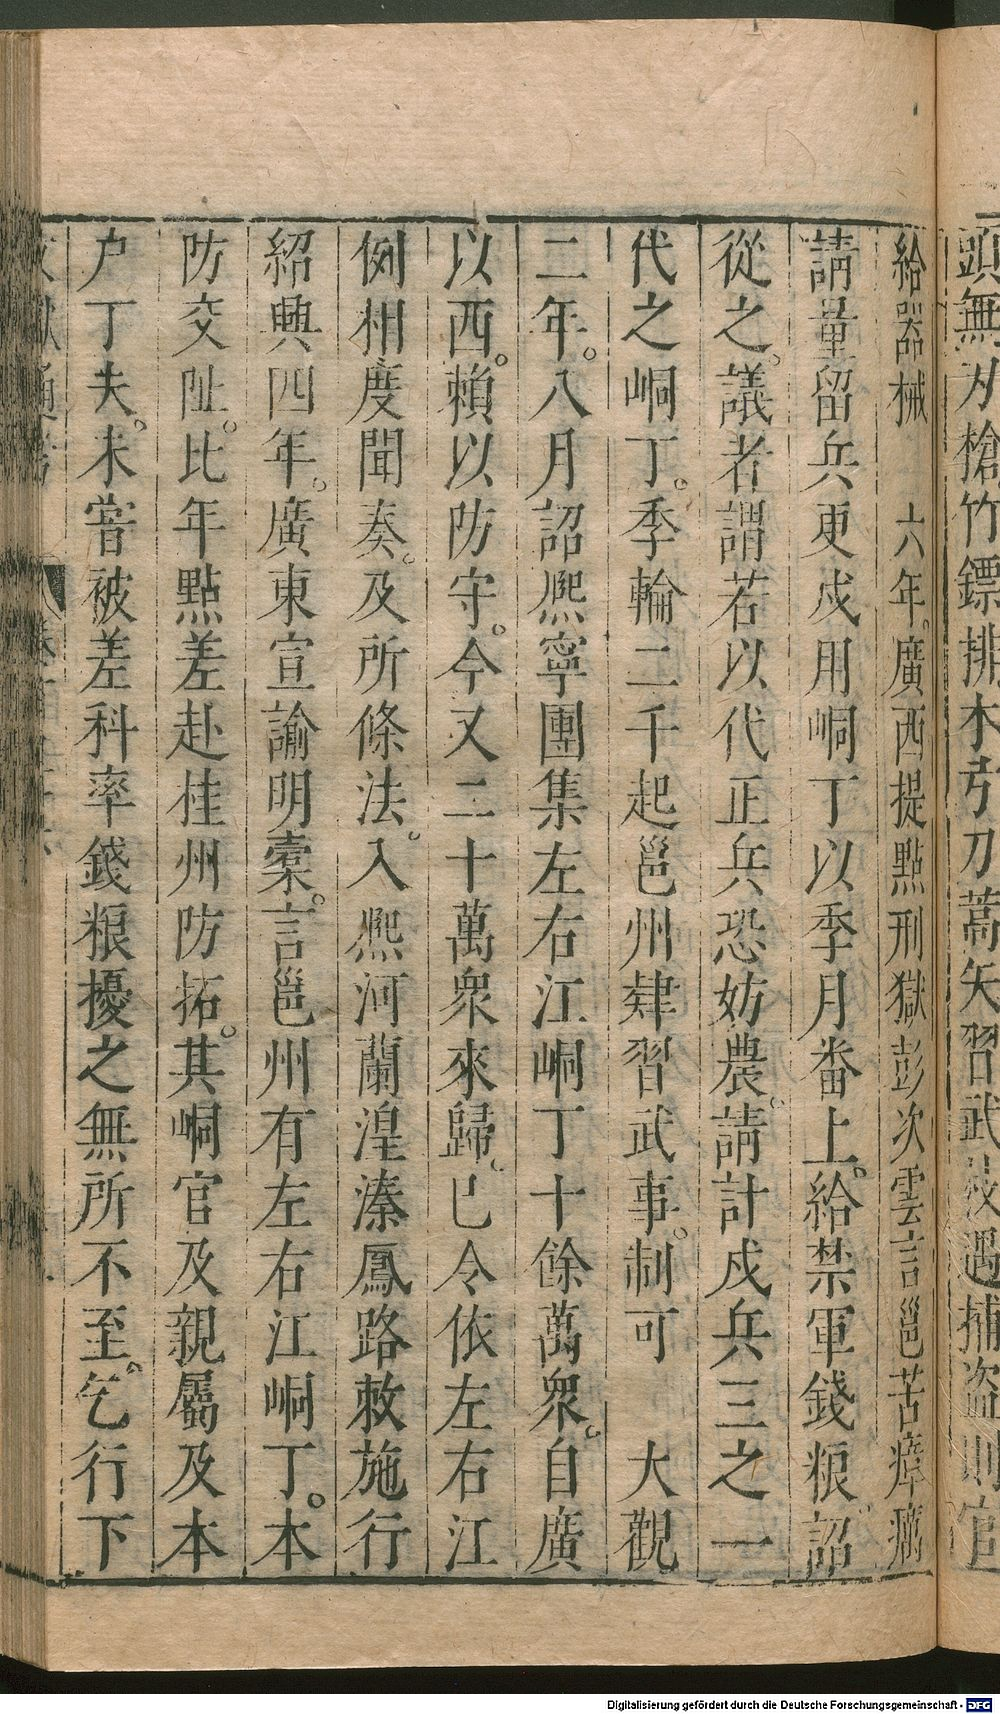 頭無刃槍竹鏢排木引刀蒿矢習武技遇捕盜則官
給器械　六年。廣西提點刑獄彭次雲言邕苦瘴癘
請量留兵更戍用峒丁以季月番上。給禁軍錢粮。詔
從之。議者謂若以代正兵恐妨農。請計戍兵三之一
代之峒丁。季輪二千起邕州肄習武事。制可　大觀
二年。八月詔熈寧團集左右江峒丁十餘萬衆。自廣
以西。賴以防守。今又二十萬衆來歸。已令依左右江
例相度聞奏。及所條法。入熈河蘭湟溱鳳路敕施行
紹興四年。廣東宣諭明槖。言邕州有左右江峒丁。本
防交阯。比年點差赴桂州防拓。其峒官及親屬及本
户丁夫。未嘗被差科率錢粮擾之無所不至。乞行下
Digitalisierung gefördert durch die Deutsche Forschungsgemeinschaft - DFG